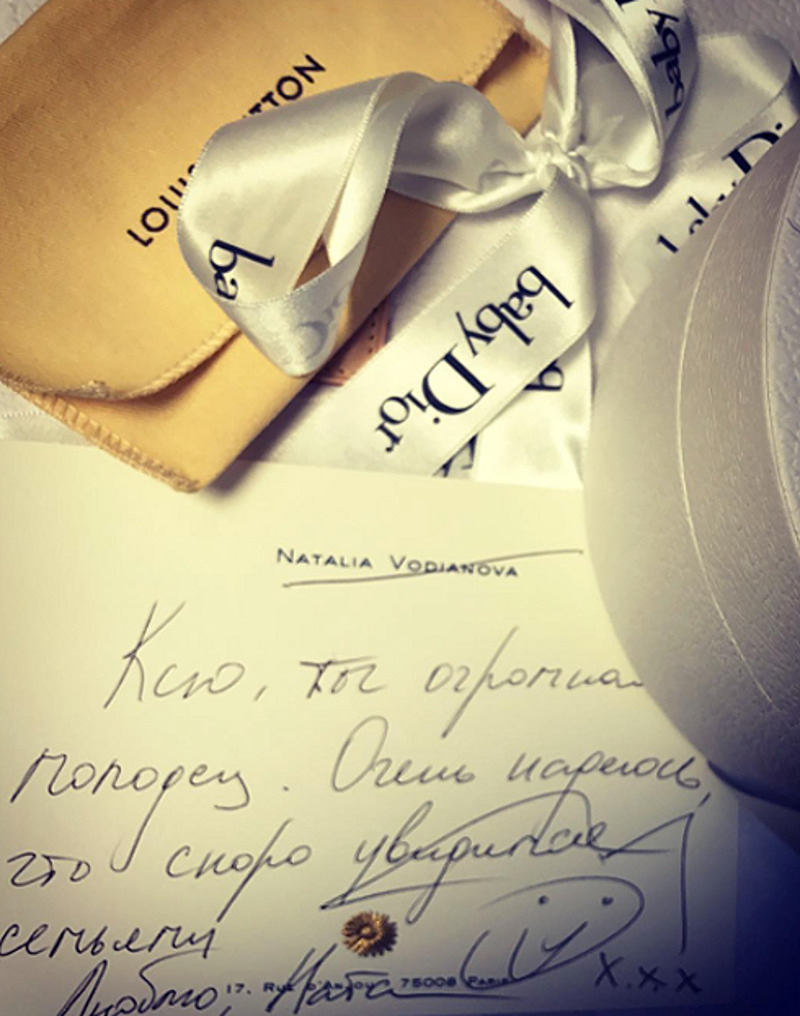 LOUIS VUITTON
baby
ba
baby Dior
NATALIA VODIANOVA
Ксю, ты огромная
молодец. Очень надеюсь,
что скоро увидимся
семьями
Люблю, Ната
X.X.X
17. RUE D'ANJOU 75008 PARIS